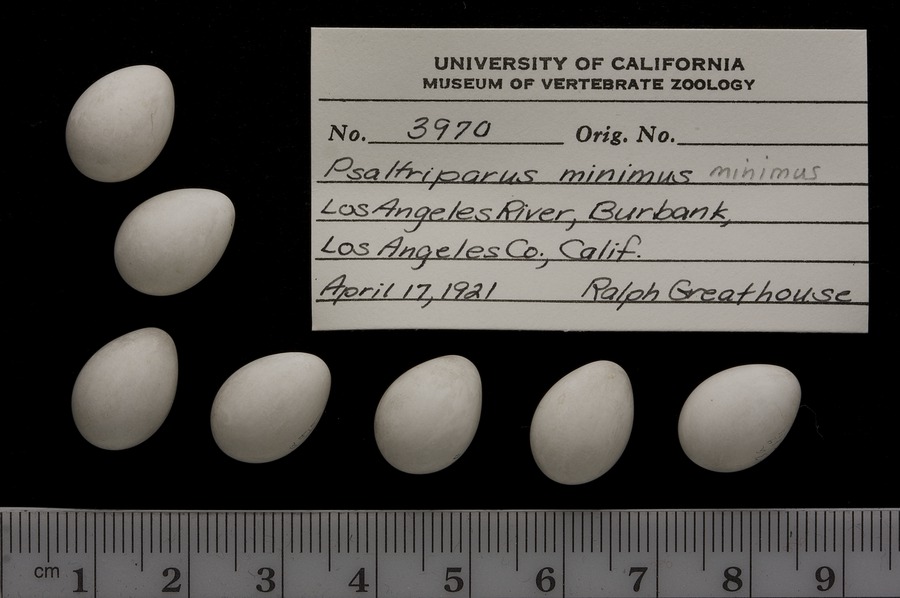 UNIVERSITY OF CALIFORNIA
MUSEUM OF VERTEBRATE ZOOLOGY
No. 3970 Orig. No.
Psaltriparus minimus minimus
Los Angeles River, Burbank,
Los Angeles Co., Calif.
April 17, 1921 Ralph Greathouse
cm 1 2 3 4 5 6 7 8 9